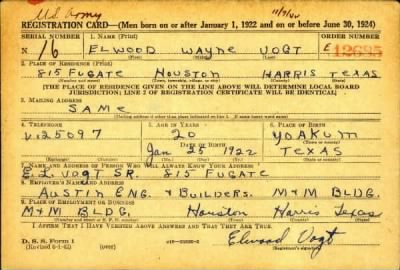 U.S. Army
11/9/42
REGISTRATION CARD—(Men born on or after January 1, 1922 and on or before June 30, 1924)
SERIAL NUMBER 1. NAME (Print) ORDER NUMBER
N 16 ELWOOD WAYNE VOGT E 12685
(First) (Middle) (Last)
2. PLACE OF RESIDENCE (Print)
815 FUGATE HOUSTON HARRIS TEXAS
(Number and street) (Town, township, village, or city) (County) (State)
[THE PLACE OF RESIDENCE GIVEN ON THE LINE ABOVE WILL DETERMINE LOCAL BOARD
JURISDICTION; LINE 2 OF REGISTRATION CERTIFICATE WILL BE IDENTICAL]
3. MAILING ADDRESS
SAME
4. TELEPHONE 5. AGE IN YEARS 6. PLACE OF BIRTH
V-25097 20 YOAKUM
DATE OF BIRTH (Town or county)
Jan 25 1922 TEXAS
(Exchange) (Number) (Mo.) (Day) (Yr.) (State or country)
7. NAME AND ADDRESS OF PERSON WHO WILL ALWAYS KNOW YOUR ADDRESS
E. L. VOGT SR. 815 FUGATE
8. EMPLOYER'S NAME AND ADDRESS
AUSTIN ENG. & BUILDERS. M&M BLDG.
9. PLACE OF EMPLOYMENT OR BUSINESS
M&M BLDG. Houston Harris Texas
(Number and street or R. F. D. number) (Town) (County) (State)
I AFFIRM THAT I HAVE VERIFIED ABOVE ANSWERS AND THAT THEY ARE TRUE.
D. S. S. Form 1
(Revised 6-1-42) (over) Elwood Vogt
(Registrant's signature)